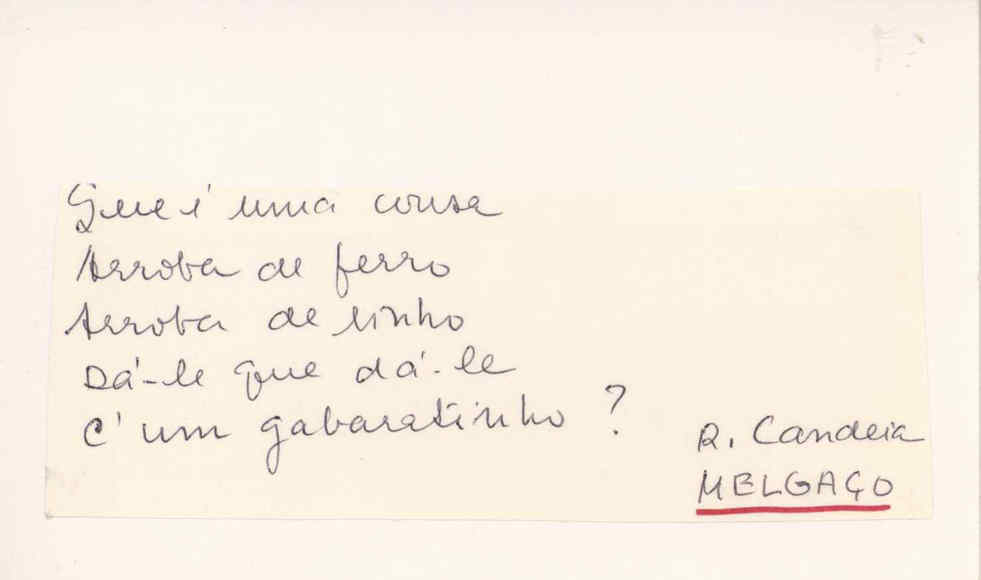 Que é uma cousa
Arroba de ferro
Arroba de linho
Dá-le que dá-le
C'um gabaratinho ?
R. Candeia
MELGAÇO